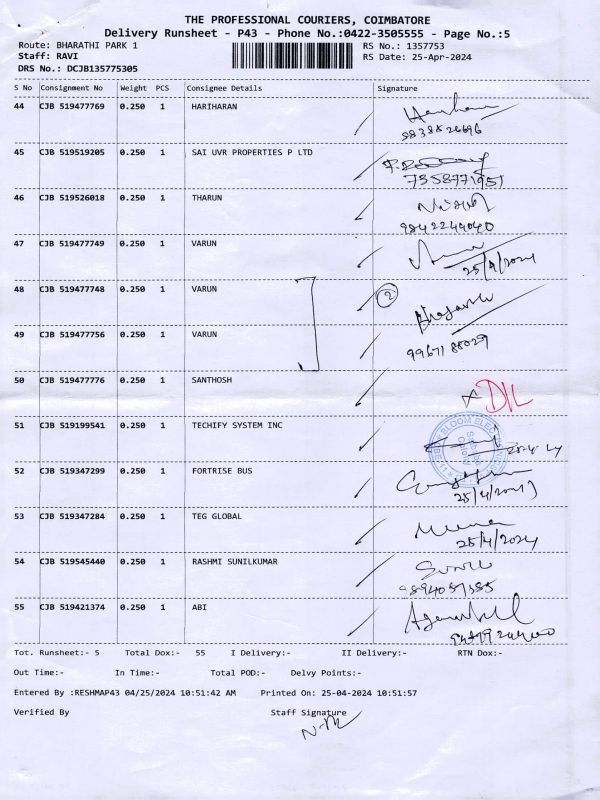 THE PROFESSIONAL COURIERS, COIMBATORE
Delivery Runsheet - P43 - Phone No.:0422-3505555 - Page No.:5
Route: BHARATHI PARK 1
RS No.: 1357753
Staff: RAVI
RS Date: 25-Apr-2024
DRS No.: DCJB135775305
S No Consignment No Weight PCS Consignee Details Signature
44 CJB 519477769 0.250 1 HARIHARAN
45 CJB 519519205 0.250 1 SAI UVR PROPERTIES P LTD
7358771951
46 CJB 519526018 0.250 1 THARUN
9842244040
47 CJB 519477749 0.250 1 VARUN
25/4/2024
48 CJB 519477748 0.250 1 VARUN 2
49 CJB 519477756 0.250 1 VARUN
9967188029
50 CJB 519477776 0.250 1 SANTHOSH
51 CJB 519199541 0.250 1 TECHIFY SYSTEM INC
52 CJB 519347299 0.250 1 FORTRISE BUS
53 CJB 519347284 0.250 1 TEG GLOBAL
25/4/2024
54 CJB 519545440 0.250 1 RASHMI SUNILKUMAR
55 CJB 519421374 0.250 1 ABI
Tot. Runsheet:- 5 Total Dox:- 55 I Delivery:- II Delivery:- RTN Dox:-
Out Time:- In Time:- Total POD:- Delvy Points:-
Entered By :RESHMAP43 04/25/2024 10:51:42 AM Printed On: 25-04-2024 10:51:57
Verified By Staff Signature